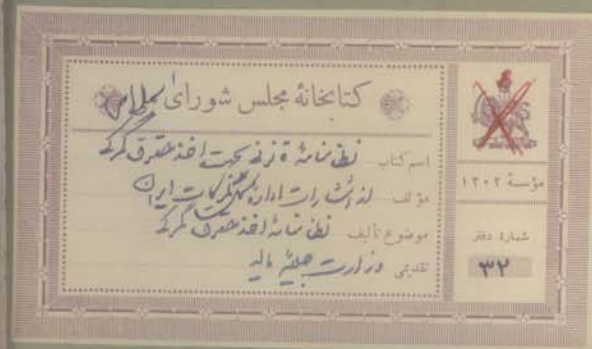 کتابخانهٔ مجلس شورای اسلامی
اسم کتاب نظامنامهٔ قانونی جهت اخذ حقوق گمرک
مؤلف از انتشارات ادارهٔ کل گمرکات ایران
موضوع تألیف نظامنامهٔ اخذ حقوق گمرک
تقدیمی وزارت جلیلهٔ مالیه
مؤسسهٔ ۱۳۰۲
شمارهٔ دفتر
۳۲